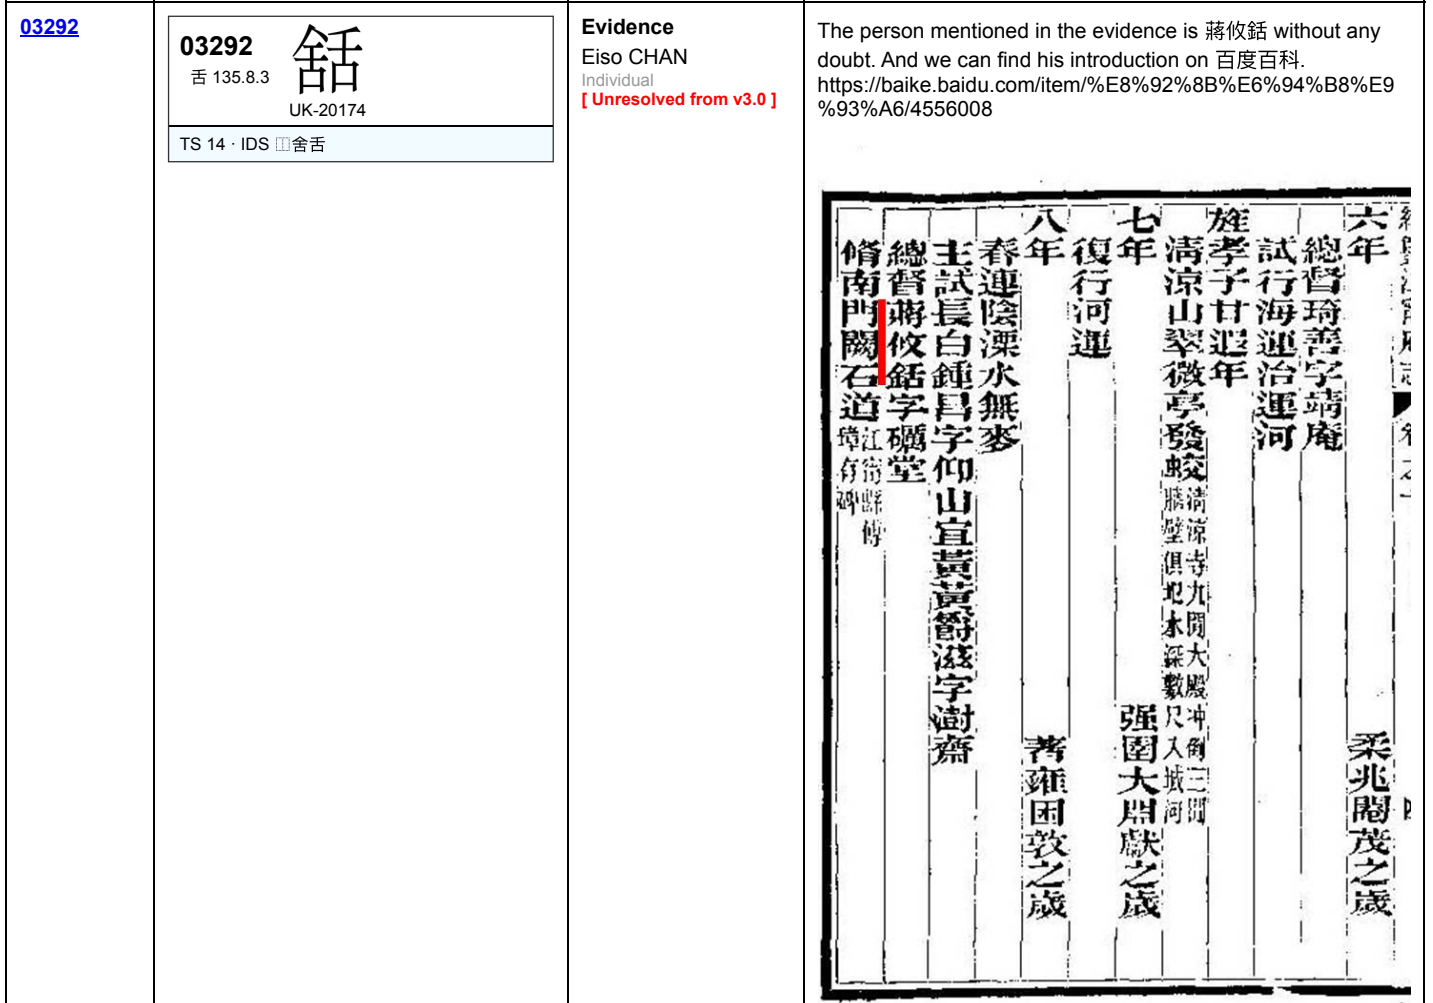 03292
03292
舌 135.8.3
𬜊
UK-20174
TS 14 · IDS ⿰舍舌
Evidence
Eiso CHAN
Individual
[ Unresolved from v3.0 ]
The person mentioned in the evidence is 蔣攸銛 without any
doubt. And we can find his introduction on 百度百科.
https://baike.baidu.com/item/%E8%92%8B%E6%94%B8%E9
%93%A6/4556008
六年 柔兆閹茂之歲
總督琦善字靖庵
試行海運治運河
旌孝子甘遐年
清涼山翠微亭發蛟
清涼寺九間大殿冲倒三間
牆壁俱圮水深數尺入城河
七年 强圉大淵獻之歲
復行河運
八年 著雍困敦之歲
春連陰溧水無麥
主試長白鍾昌字仰山宜黃黃爵滋字澍齋
總督蔣攸銛字礪堂
脩南門闕石道
江甯縣傅
璋有碑